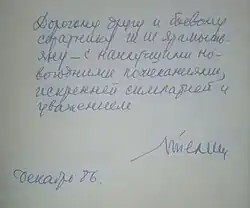 Дорогому другу и боевому
соратнику Ш Ш Ярамышь-
яну – с наилучшими но-
вогодними пожеланиями,
искренней симпатией и
уважением
декабрь 86.